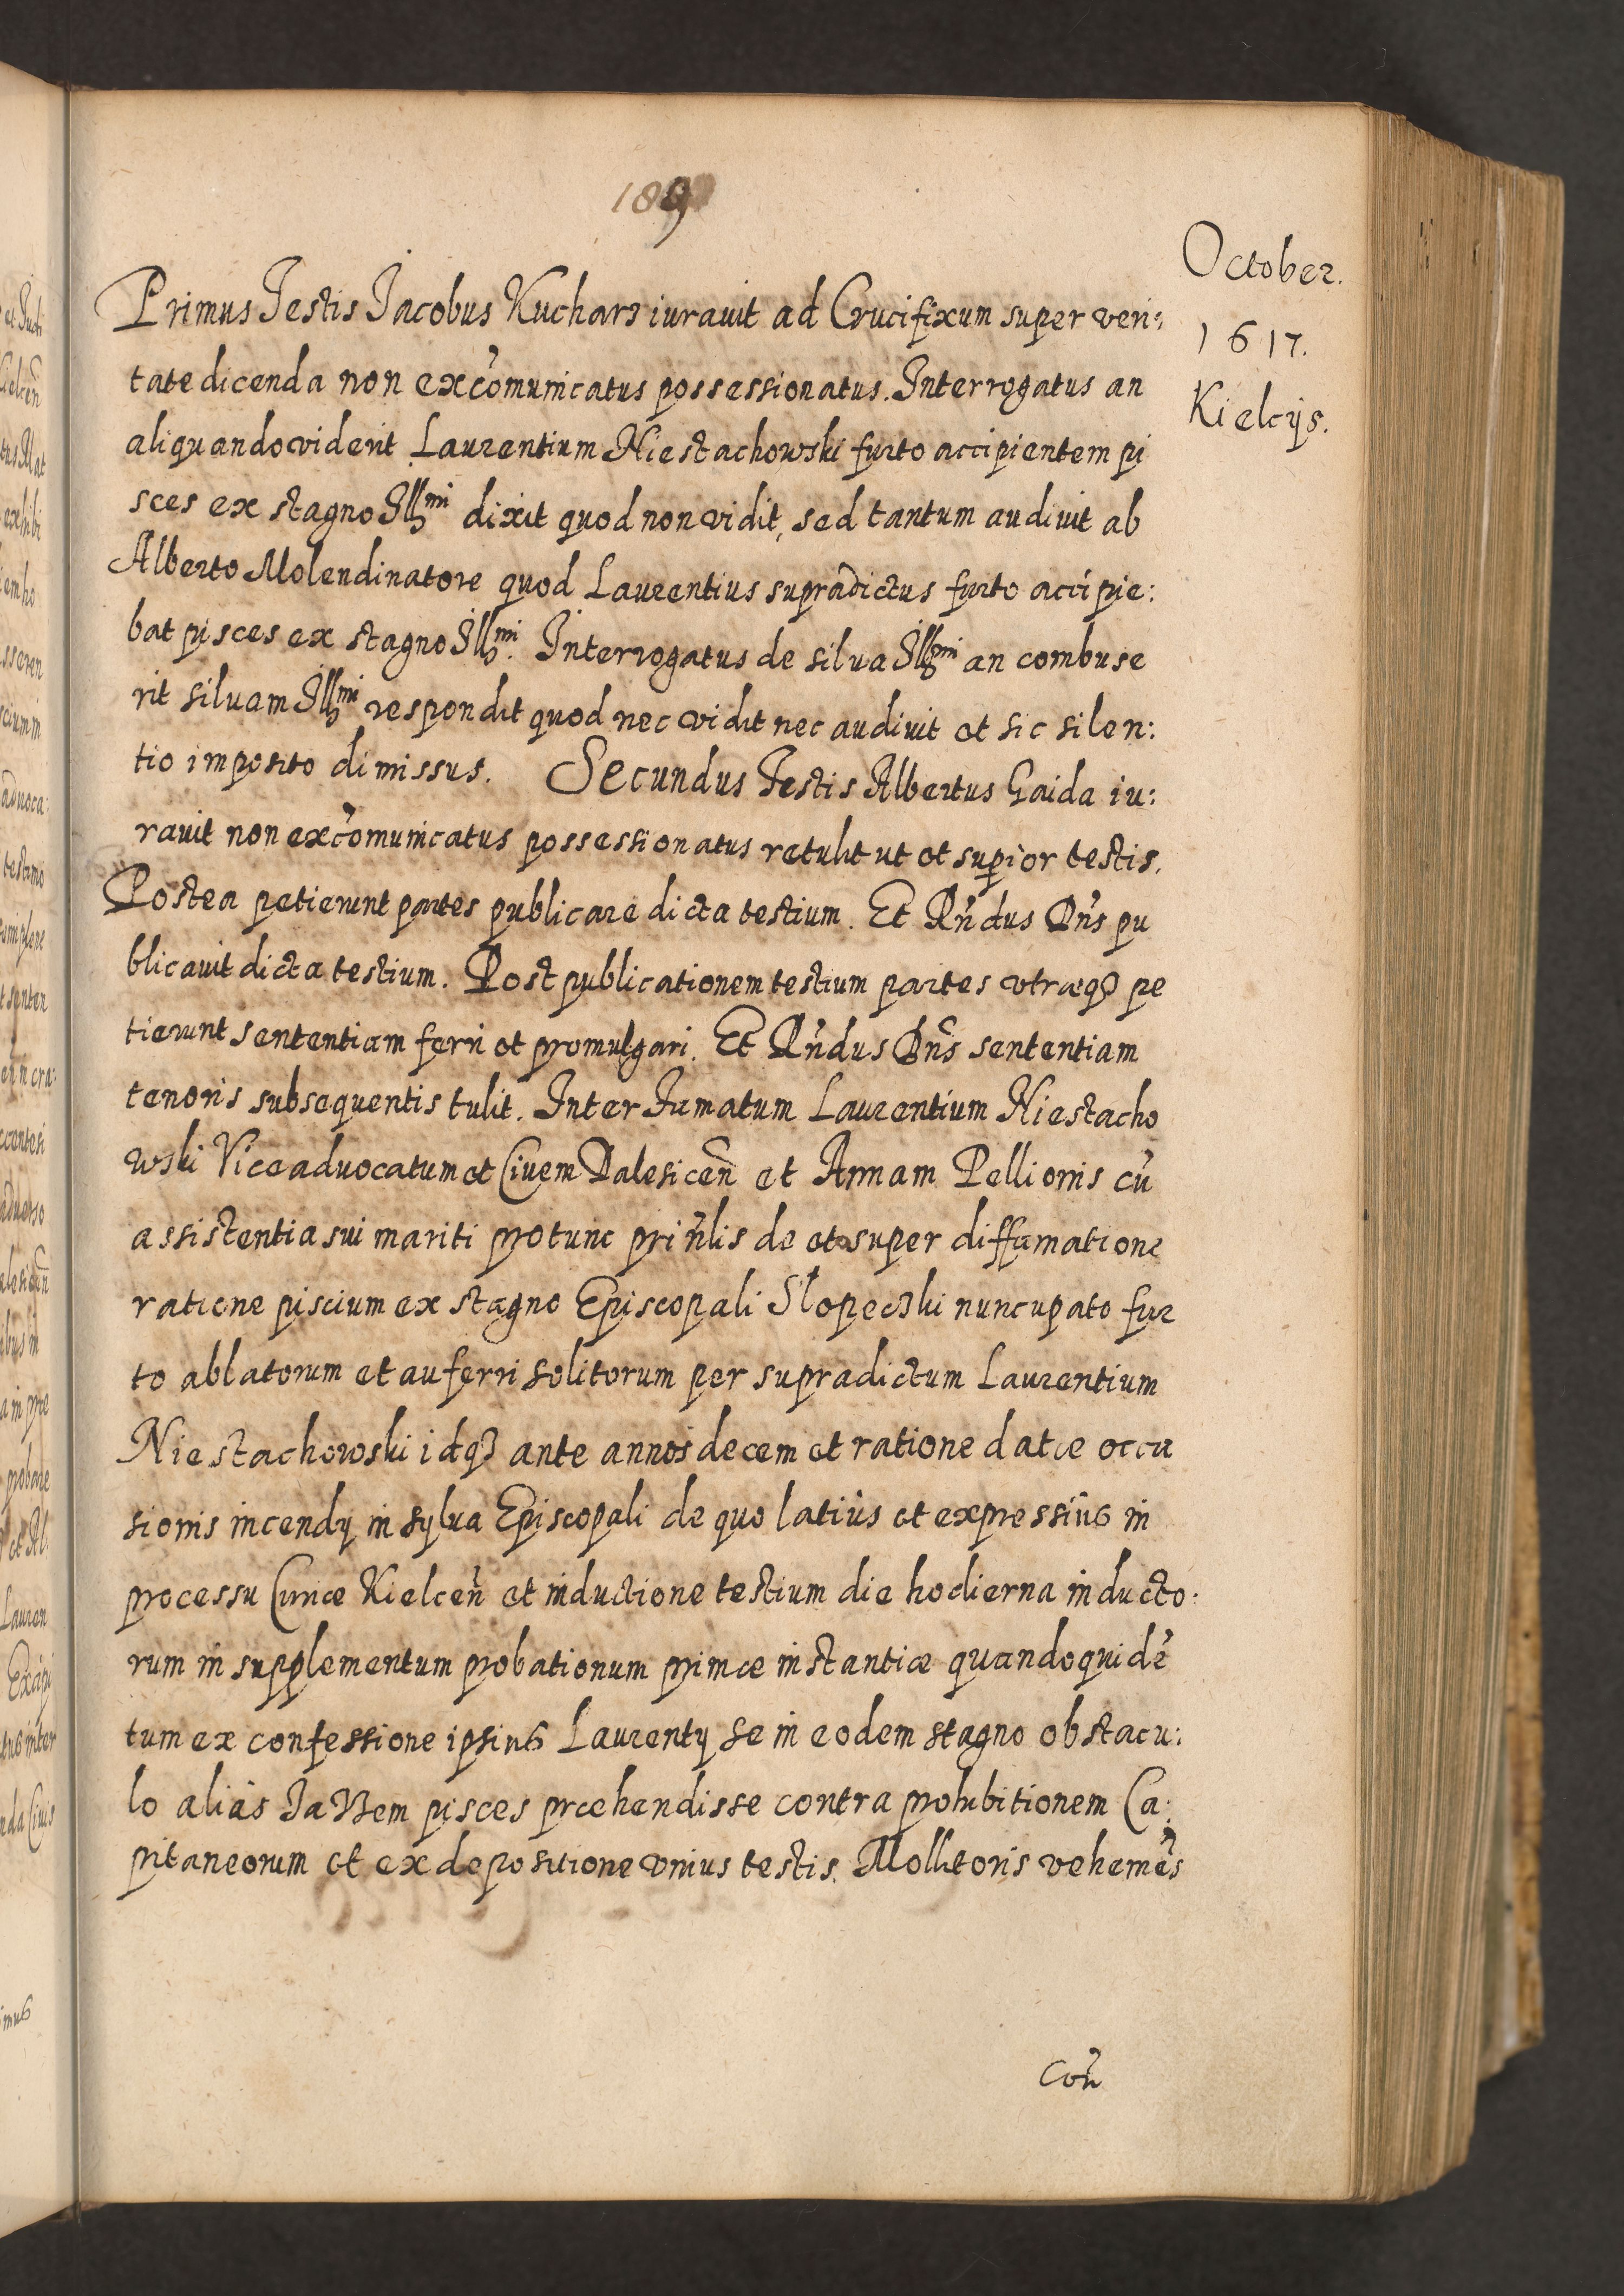 189
October.
1617.
Kielcijs.
Primus Testis Jacobus Kucharz iurauit ad Crucifixum super veri:
tate dicenda non excõmunicatus possessionatus. Interrogatus an
aliquando viderit Laurentium Niestachowski furto accipientem pi
sces ex stagno Illmi dixit quod non vidit, sed tantum audiuit ab
Alberto Molendinatore quod Laurentius supradictus furto accipie:
bat pisces ex stagno Illmi. Interrogatus de silua Illmi an combuse
rit siluam Illmi respondit quod nec vidit nec audiuit et sic silen:
tio imposito dimissus. Secundus Testis Albertus Gaida iu:
rauit non excõmunicatus possessionatus retulit ut et supior testis.
Postea petierunt partes publicare dicta testium. Et Rñdus Dñs pu
blicauit dicta testium. Post publicationem testium partes vtræqꝫ pe
tierunt sententiam ferri et promulgari. Et Rñdus Dñs sententiam
tenoris subsequentis tulit. Inter Famatum Laurentium Niestacho
wski Viceaduocatum et Ciuem Dalesiceñ et Annam Pellionis cũ
assistentia sui mariti protunc priñlis de et super diffamatione
ratione piscium ex stagno Episcopali Slopeczki nuncupato fur
to ablatorum et auferri solitorum per supradictum Laurentium
Niestachowski idqꝫ ante annos decem et ratione datæ occa
sionis incendij in sylua Episcopali de quo latiùs et expressiùs in
processu Curiæ Kielceñ et inductione testium die hodierna inducto:
rum in supplementum probationum primæ instantiæ quandoquidẽ
tum ex confessione ipsius Laurentij se in eodem stagno obstacu:
lo aliàs Jazzem pisces præhendisse contra prohibitionem Ca:
pitaneorum et ex depositione vnius testis. Mollitoris vehemẽs
coñ